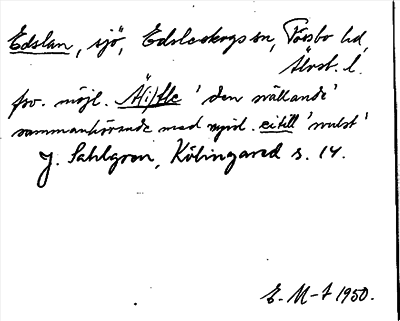 Edslan, sjö, Edsleskogs sn, Tössbo hd,
Älvsb. l.
fsv. möjl. *Æitle 'den svällande'
sammanhörande med nyisl. eitill 'svulst'
J. Sahlgren, Kölingared s. 14.
E. M-t 1950.